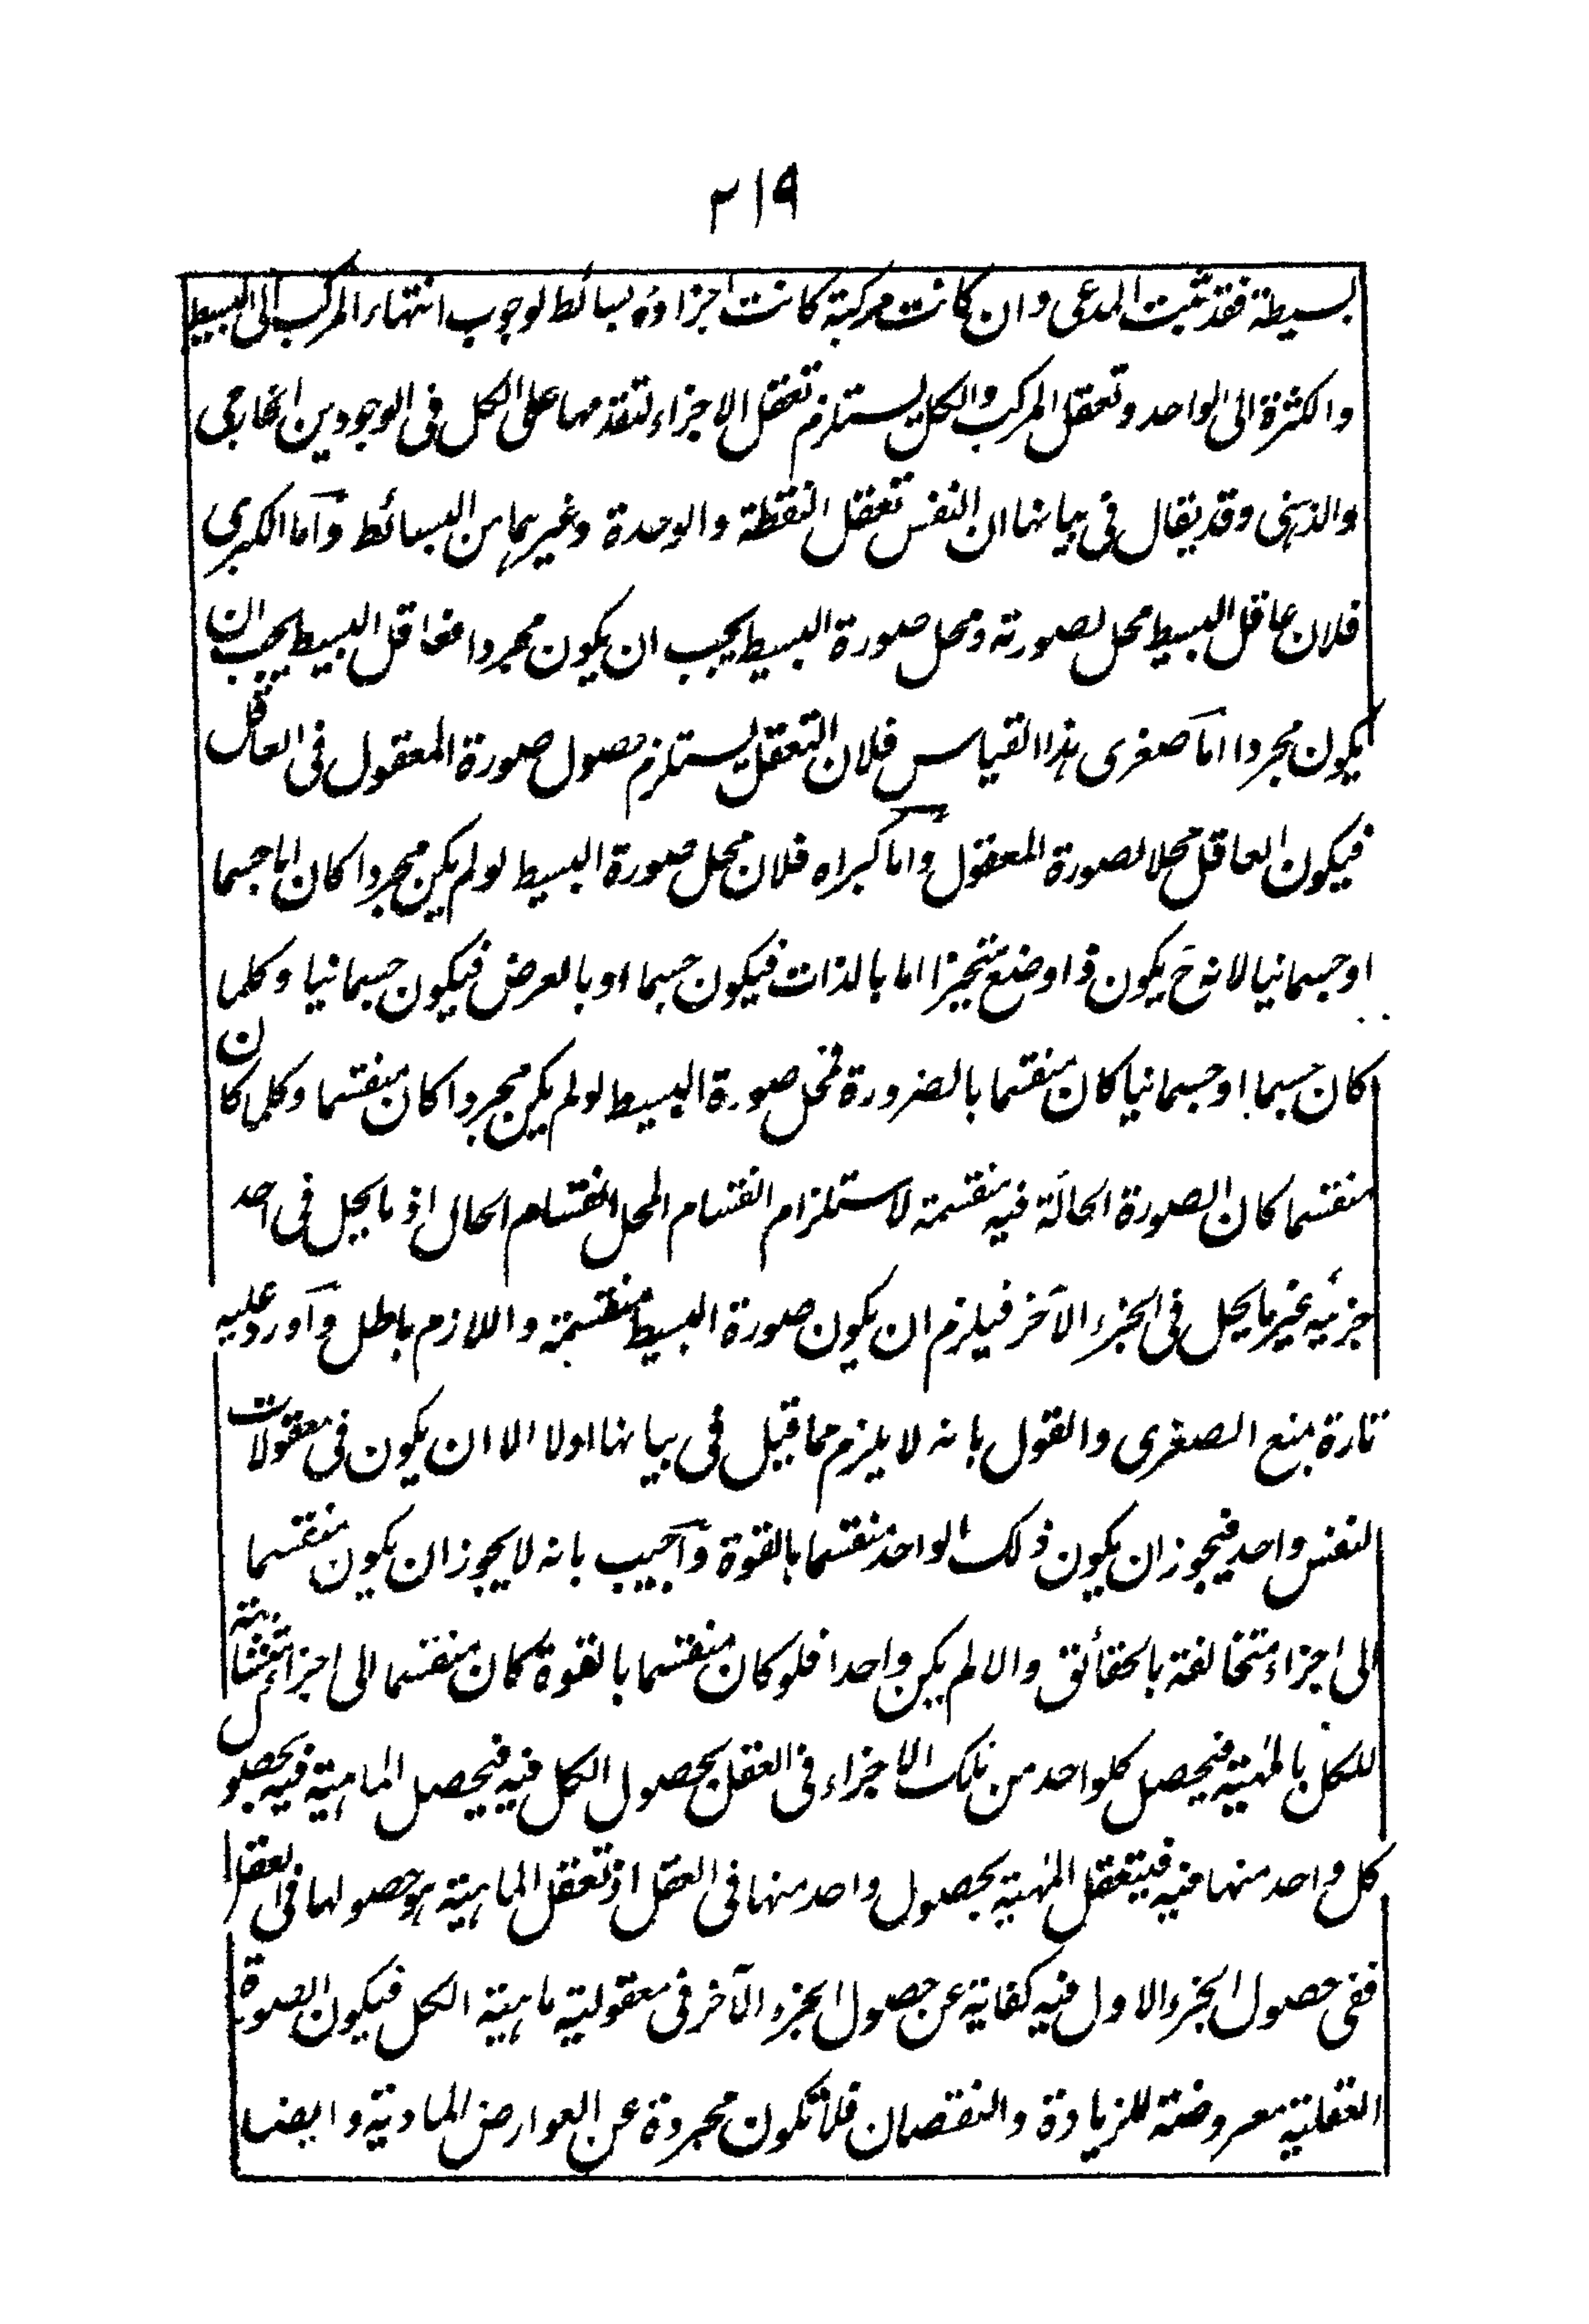 ٢١٩
بسيطة فقد ثبت المدعى وان كانت مركبة كانت اجزاؤه بسائط لوجوب انتهاء المركب الى البسيط
والكثرة الى الواحد وتعقل المركب والكل يستلزم تعقل الاجزاء لتقدمها على الكل فى الوجودين الخارجى
والذهنى وقد يقال فى بيانها ان النفس تعقل النقطة والوحدة وغيرهما من البسائط وأما الكبرى
فلان عاقل البسيط محل لصورته ومحل صورة البسيط يجب ان يكون مجردا فعاقل البسيط يجب ان
يكون مجردا اما صغرى هذا القياس فلان التعقل يستلزم حصول صورة المعقول فى العاقل
فيكون العاقل محلا لصورة المعقول واما كبراه فلان محل صورة البسيط لو لم يكن مجردا كان اما جسما
او جسمانيا لانه ح يكون ذا وضع متحيزا اما بالذات فيكون جسما او بالعرض فيكون جسمانيا وكلما
كان جسما او جسمانيا كان منقسما بالضرورة فمحل صورة البسيط لو لم يكن مجردا كان منقسما وكلما كان
منقسما كان الصورة الحالّة فيه منقسمة لاستلزام انقسام المحل انقسام الحال اذ ما يحل فى احد
جزئيه غير ما يحل فى الجزء الآخر فيلزم ان يكون صورة البسيط منقسمة واللازم باطل وأورد عليه
تارة بمنع الصغرى والقول بانه لا يلزم مما قيل فى بيانها اولا الا ان يكون فى معقولات
النفس واحد فيجوز ان يكون ذلك الواحد منقسما بالقوة وأجيب بانه لا يجوز ان يكون منقسما
الى اجزاء متخالفة بالحقائق والا لم يكن واحدا فلو كان منقسما بالقوة كان منقسما الى اجزاء متشابهة
للكل بالمهية فيحصل كلواحد من تلك الاجزاء فى العقل بحصول الكل فيه فيحصل الماهية فيه بحصول
كل واحد منها فيه فيتعقل المهية بحصول واحد منها فى العقل اذ تعقل الماهية هو حصولها فى العقل
ففى حصول الجزء الاول فيه كفاية عن حصول الجزء الآخر فى معقولية ماهية الكل فيكون الصورة
العقلية معروضة للزيادة والنقصان فلا تكون مجردة عن العوارض المادية وايضا